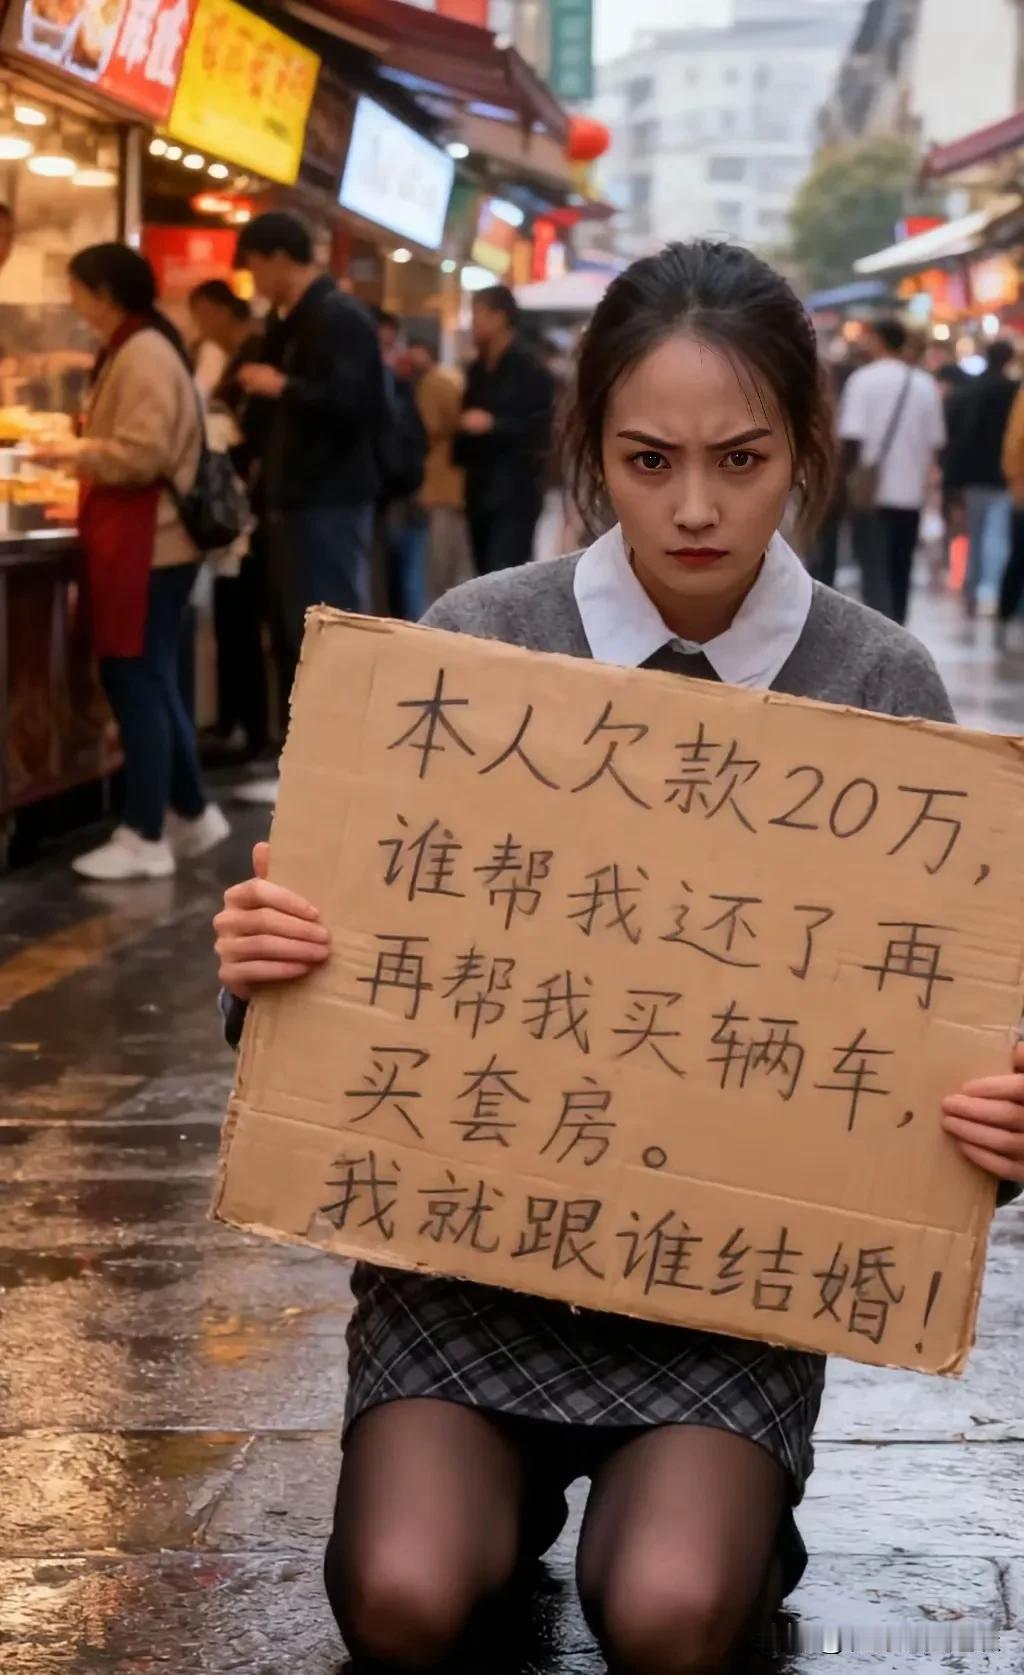 本人欠款20万,
谁帮我还了再
再帮我买辆车,
买套房。
我就跟谁结婚!